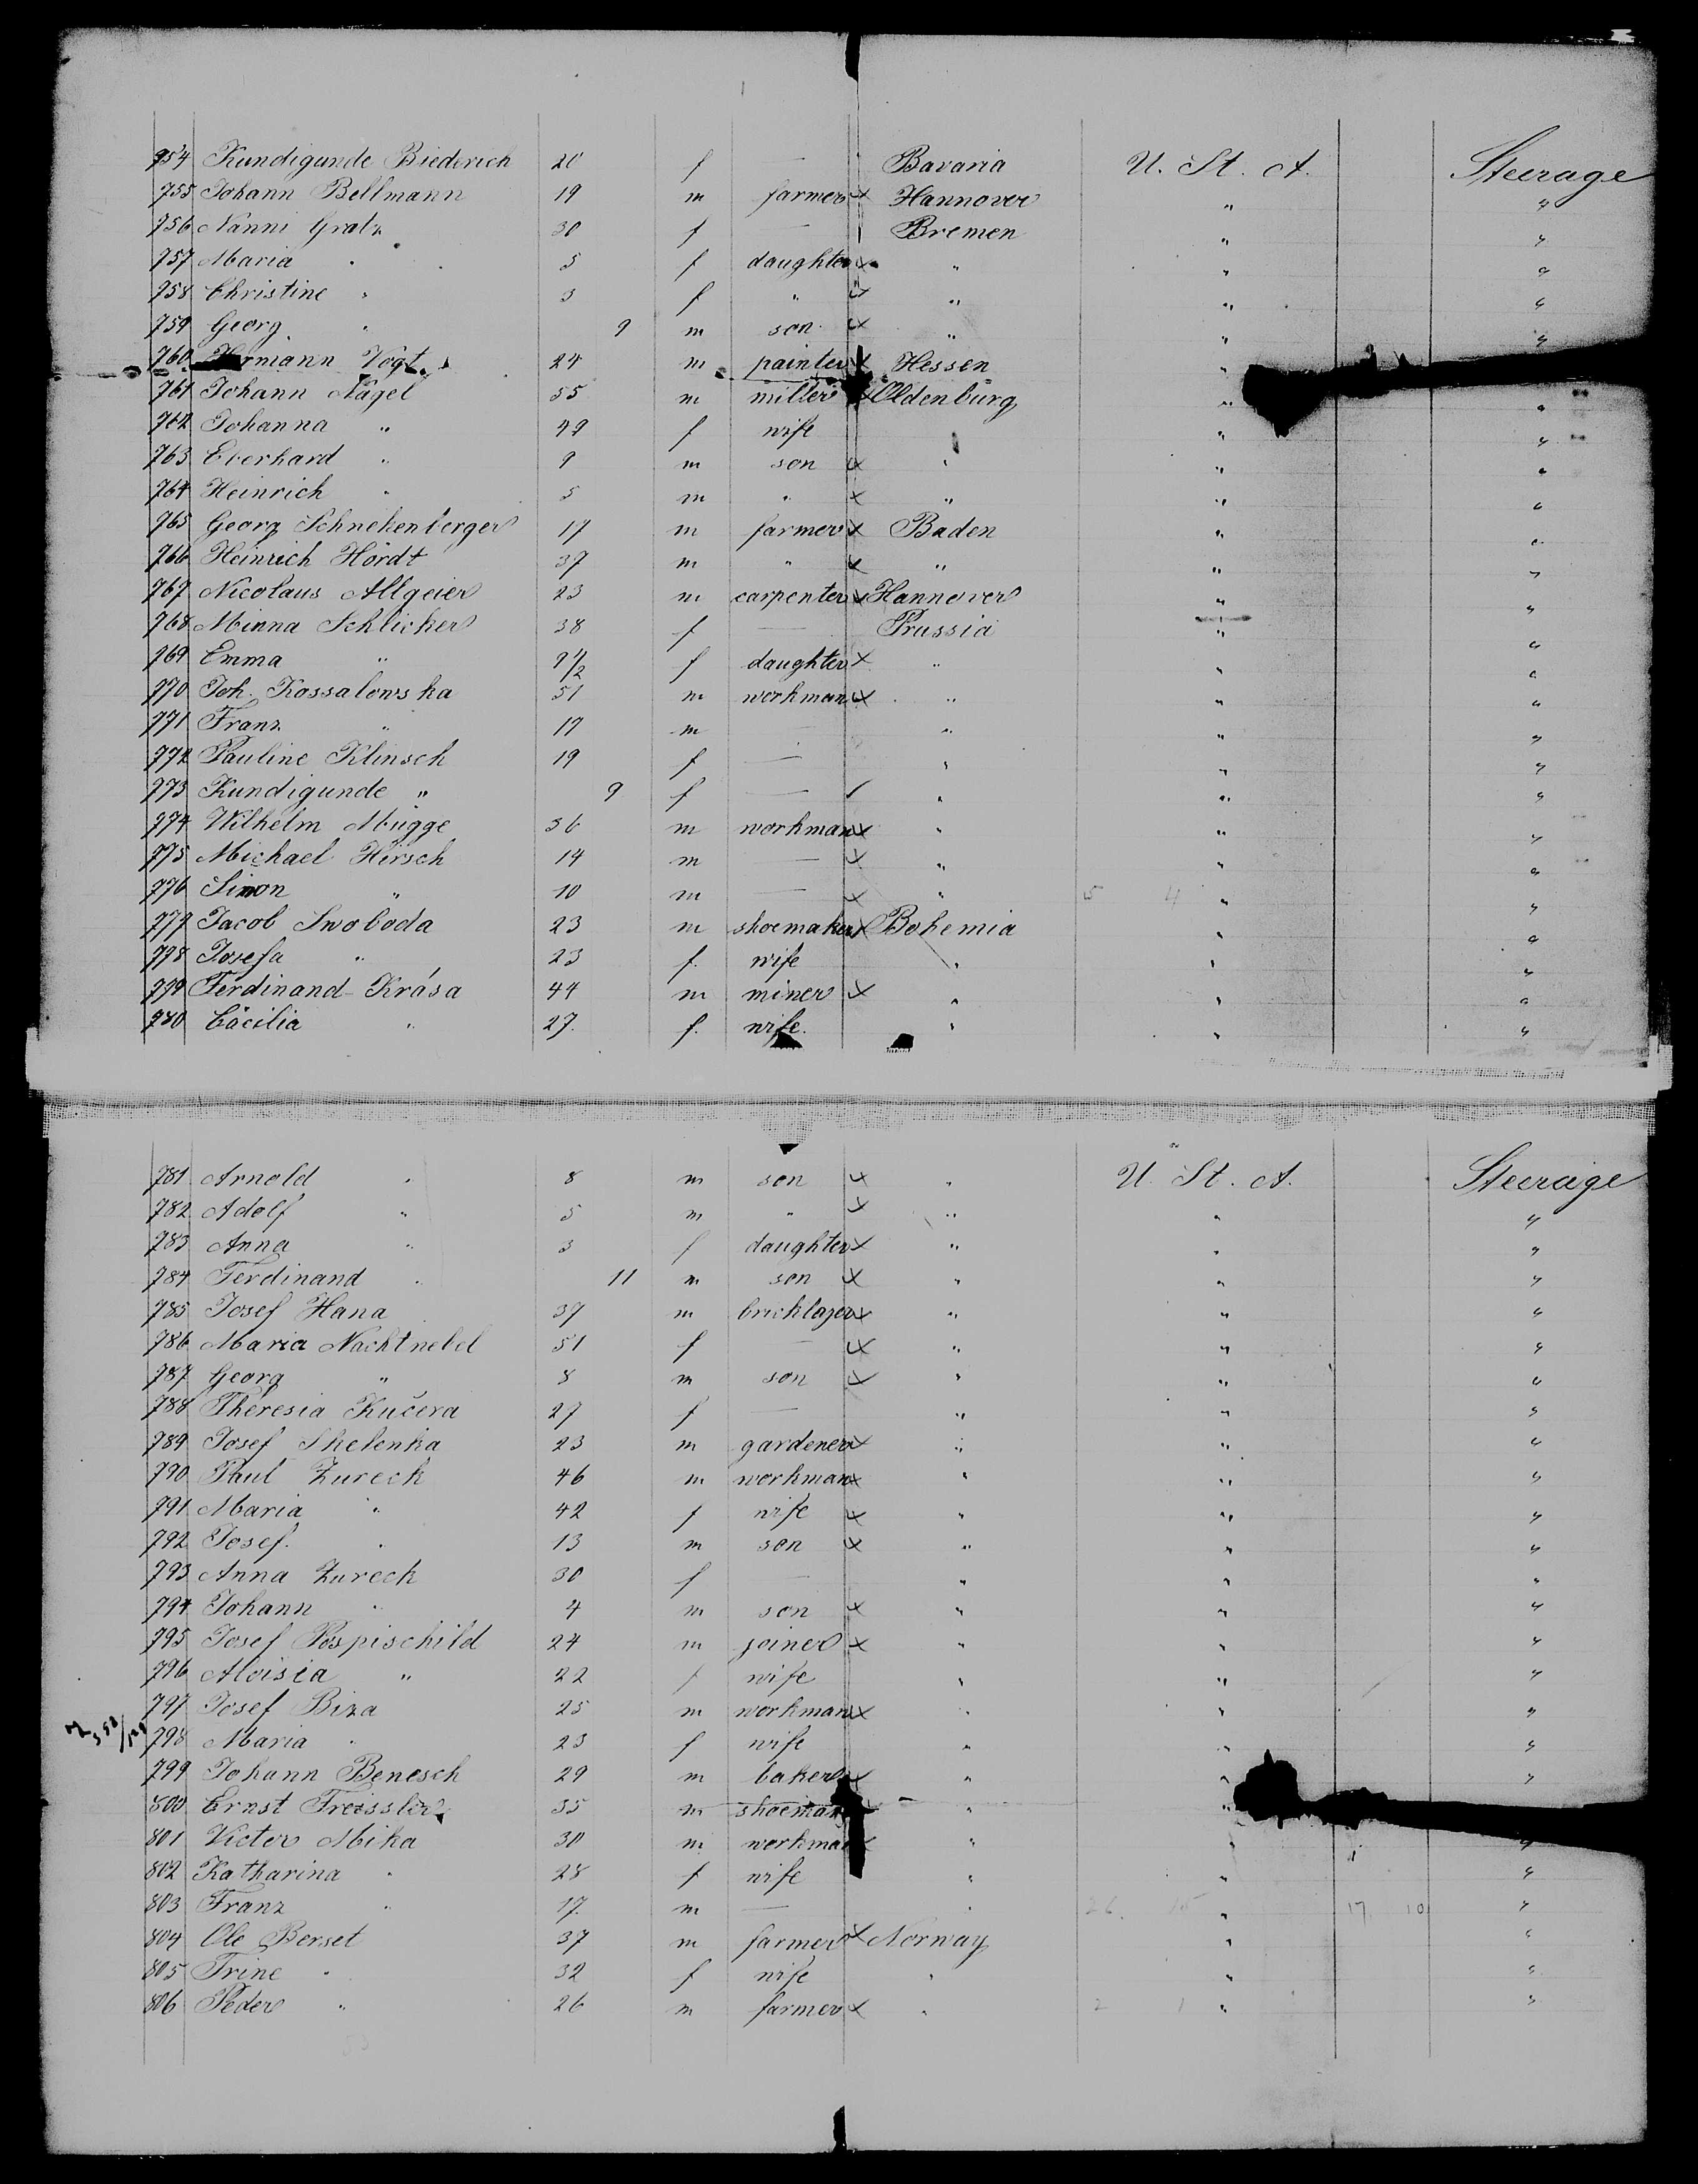 754 Kundigunde Biederich 20 f — Bavaria U. St. A. Steerage
755 Johann Bellmann 19 m farmer x Hannover " "
756 Nanni Gratz 30 f — Bremen " "
757 Maria " 5 f daughter x " " "
758 Christine " 3 f " x " " "
759 Georg " 9 m son x " " "
760 Hermann Vogt 24 m painter x Hessen "
761 Johann Nagel 55 m miller x Oldenburg " "
762 Johanna " 49 f wife " " "
763 Everhard " 9 m son x " " "
764 Heinrich " 5 m " x " " "
765 Georg Schnekenberger 17 m farmer x Baden " "
766 Heinrich Hördt 37 m " x " " "
767 Nicolaus Allgeier 23 m carpenter x Hannover " "
768 Minna Schlicker 38 f — Prussia " "
769 Emma " 9 1/2 f daughter x " " "
770 Joh. Kossalowska 51 m workman x " " "
771 Franz " 17 m — " " "
772 Pauline Klinsch 19 f — " " "
773 Kundigunde " 9 f — ✓ " " "
774 Wilhelm Mügge 36 m workman x " " "
775 Michael Hirsch 14 m — x " " "
776 Simon " 10 m — x " 5 4 " "
777 Jacob Swoboda 23 m shoemaker x Bohemia " "
778 Josefa " 23 f. wife " " "
779 Ferdinand Krása 44 m miner x " " "
780 Cäcilia " 27. f. wife. " " "
781 Arnold " 8 m son x " U. St. A. Steerage
782 Adolf " 5 m " x " " "
783 Anna " 3 f daughter x " " "
784 Ferdinand " 11 m son x " " "
785 Josef Hana 37 m bricklayer x " " "
786 Maria Nachtnebel 51 f — x " " "
787 Georg " 8 m son x " " "
788 Theresia Kučera 27 f — " " "
789 Josef Skelenka 23 m gardener x " " "
790 Paul Zureck 46 m workman x " " "
791 Maria " 42 f wife x " " "
792 Josef " 13 m son x " " "
793 Anna Zureck 30 f — " " "
794 Johann " 4 m son x " " "
795 Josef Pospischild 24 m joiner x " " "
796 Aloisia " 22 f wife " " "
797 Josef Biza 25 m workman x " " "
798 Maria " 23 f wife " " "
799 Johann Benesch 29 m baker x " " "
800 Ernst Freissler 35 m shoeman " "
801 Victor Mika 30 m workman x " " "
802 Katharina " 28 f wife " " "
803 Franz " 17. m — " 26. 15 " 17 10 "
804 Ole Berset 37 m farmer x Norway " "
805 Trine " 32 f wife " " "
806 Peder " 26 m farmer x " 2 1 " "